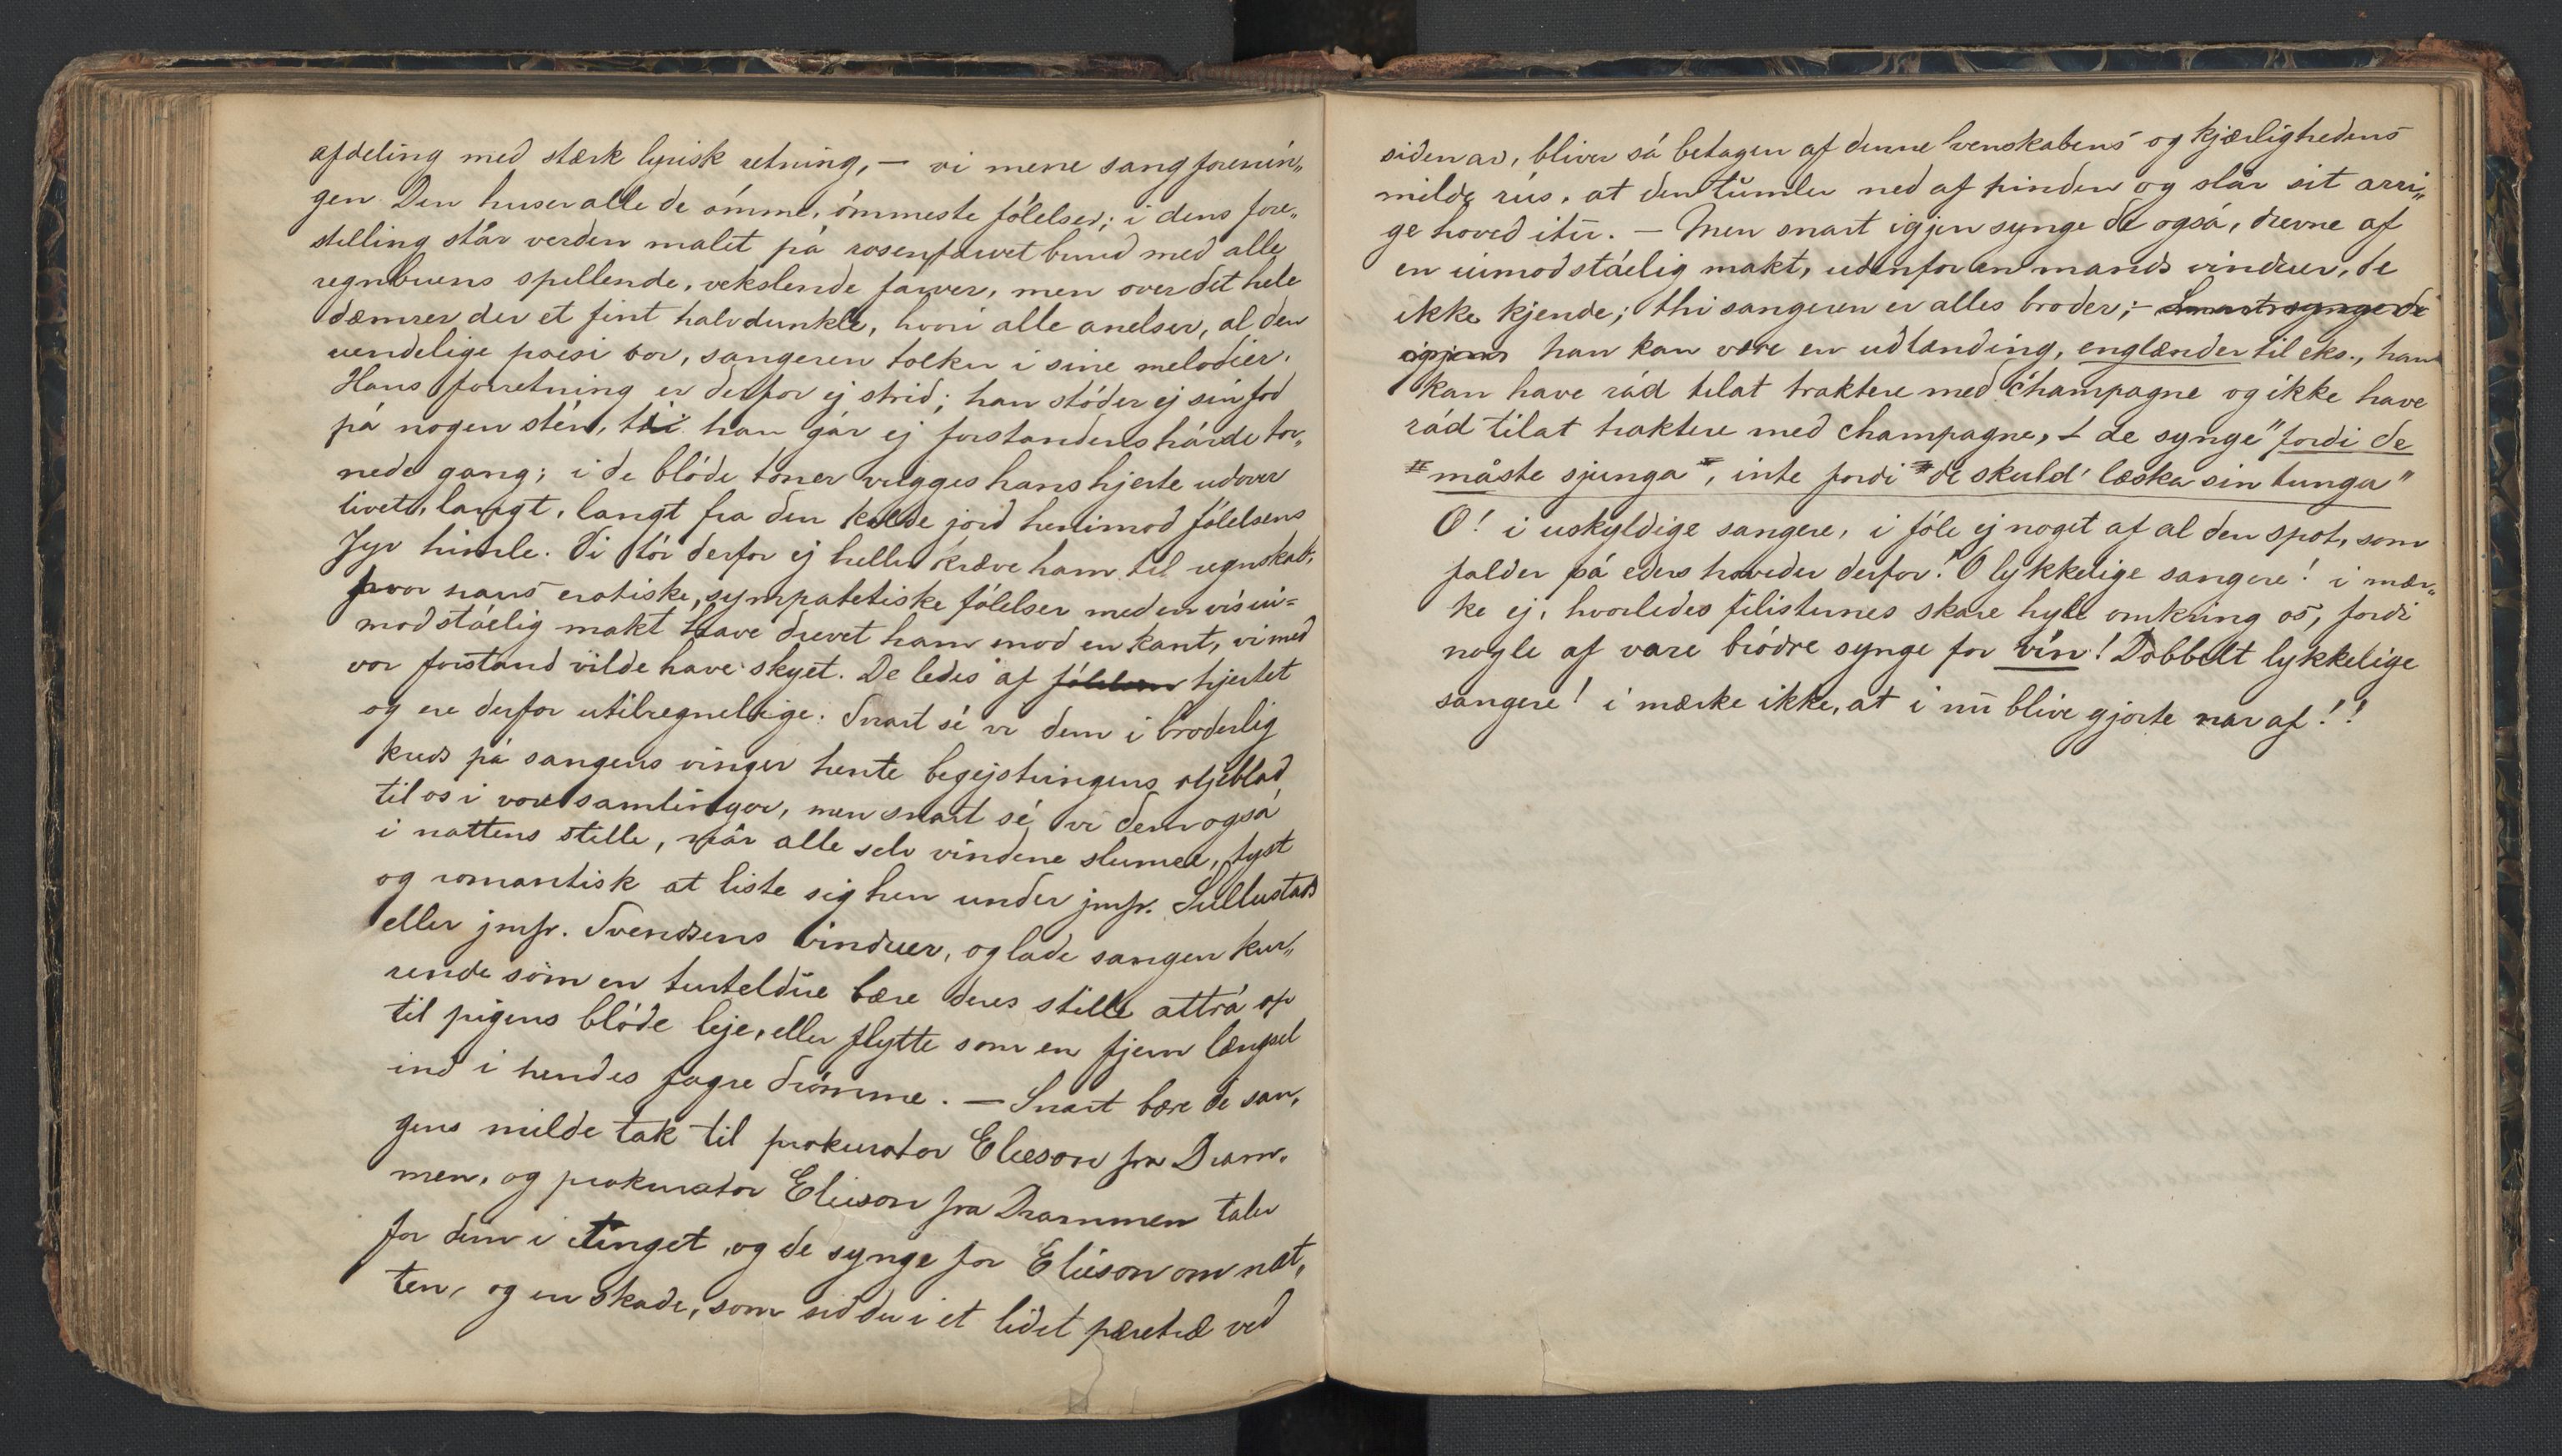 afdeling med stærk lyrisk retning, — vi mene sangforenin„
gen Den huser alle de ómme, ómmeste fólelser; i dens fore„
stilling står verden malet på rosenfarvet bund med alle
regnbuens spillende, vekslende farver, men over det hele
dæmrer der et fint halvdunkle, hvori alle anelser, al den
uendelige poesi bor, sangeren tolker i sine melodier.
Hans forretning er derfor ej strid; han stóder ej sin fod
på nogen stén, ti han går ej forstandens hårde tor„
nede gang; i de blóde tóner vugges hans hjerte udover
livet, langt, langt fra den kolde jord henimod fólelsens
syv himle. Vi tór derfor ej heller kræve ham til regnskab,
hvor hans erotiske, sympatetiske fólelser med en vis ui=
modståelig makt have drevet ham mod en kant, vi med
vor forstand vilde have skyet. De ledes af hjertet
og ere derfor utilregnelige. Snart sé vi dem i broderlig
kreds på sangens vinger hente begejstringens oljeblad
til os i vore samlinger, men snart sé vi dem også
i nattens stille, når alle selv vindene slumre, tyst
og romantisk at liste sig hen under jmfr. Sullustads
eller jmfr. Svendsens vinduer, og lade sangen kur„
rende som en turteldue bære deres stille attrå op
til pigens blóde leje, eller flytte som en fjern længsel
ind i hendes fagre drómme. — Snart bære de san„
gens milde tak til prokurator Elieson fra Dram„
men, og prokurator Elieson fra Drammen taler
for dem i tinget, og de synge for Elieson om nat„
ten, og en skade, som sidder i et lidet pæretræ ved
siden av, bliver så betagen af denne venskabens og kjærlighedens
milde rus, at den tumler ned af pinden og slår sit arri„
ge hoved itu. — Men snart igjen synge de også, drevne af
en uimodståelig makt, udenfor en mands vinduer, de
ikke kjende; thi sangeren er alles broder; – Snart synge de
igjen han kan være en udlænding, englænder til eks., han
kan have råd til at traktere med champagne og ikke have
råd til at traktere med champagne, de synge "fordi de
måste sjunga", inte fordi "de skuld' læska sin tunga"
O! i uskyldige sangere, i fóle ej noget af al den spot, som
falder på eders hoveder derfor! O lykkelige sangere! i mær„
ke ej, hvorledes filisternes skare hyle omkring os, fordi
nogle af vare bródre synge for vin! Dobbelt lykkelige
sangere! i mærke ikke, at i nu blive gjorte nar af!!